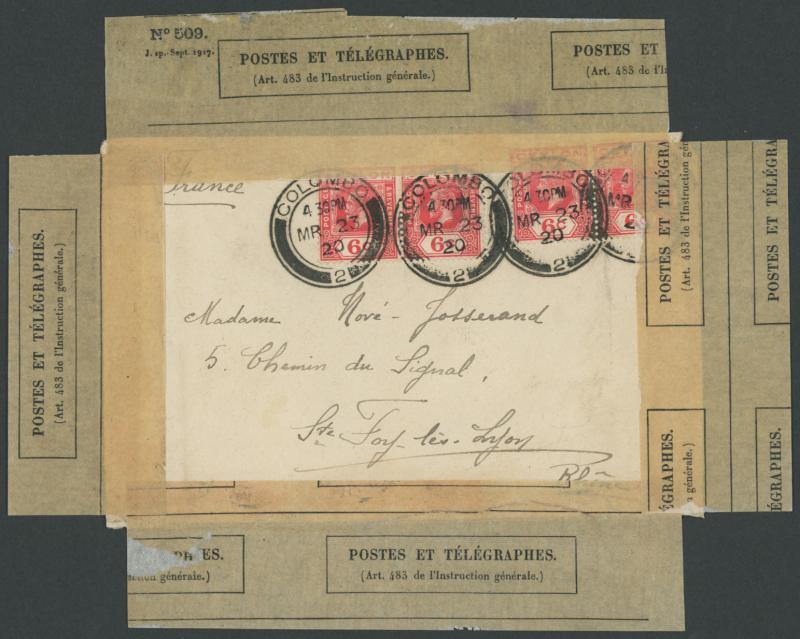 Nº 509.
J. 1p. Sept. 1917.
POSTES ET TÉLÉGRAPHES.
(Art. 483 de l'Instruction générale.)
POSTES ET
(Art. 483 de l'I
France
COLOMBO
4 30PM
MR 23
20
2
6
COLOMBO
4 30PM
MR 23
20
2
6
COLOMBO
4 30PM
MR 23
20
2
6c
CEYLON
4
MR
2
6
Madame Nové-Josserand
5. Chemin du Signal,
Ste Foy-lès-Lyon
Rhône
POSTES ET TÉLÉGRAPHES.
(Art. 483 de l'Instruction générale.)
POSTES ET TÉLÉGRA
(Art. 483 de l'Instruction gén
POSTES ET TÉLÉGRA
ÉGRAPHES.
n générale.)
ÉGRAPHES
PH ES.
générale.)
POSTES ET TÉLÉGRAPHES.
(Art. 483 de l'Instruction générale.)